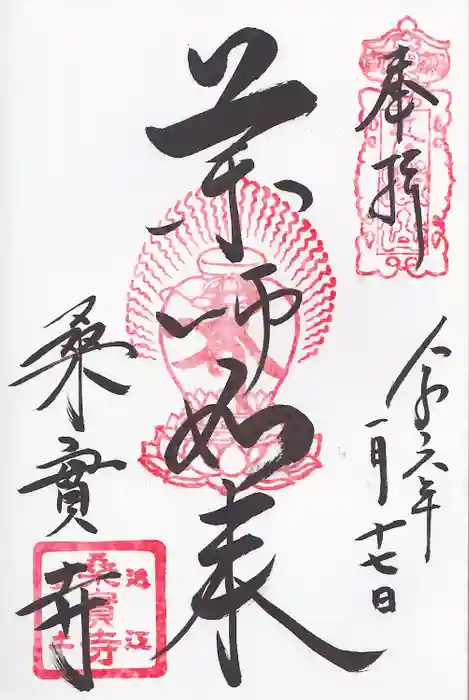 奉拝
令六年
一月十七日
薬師如来
桑實寺
近江
桑實寺